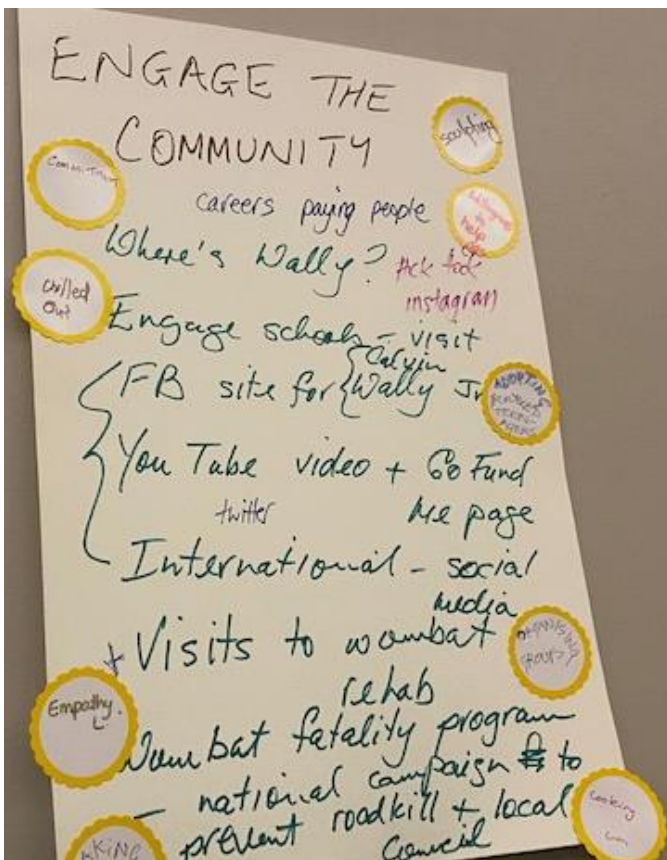 ENGAGE THE
COMMUNITY
sculpting
Commitment
careers paying people
to help
Where's Wally?
instagram
Chilled
Out
Engage schools - visit
Calvin
FB site for { Wally Jr
ADOPTING
You Tube video + Go Fund
me page
twitter
International - social
media
+ Visits to wombat
rehab
ORGANISING
GROUPS
Empathy
Wombat fatality program
- national campaign to
prevent roadkill + local
Council
Cooking